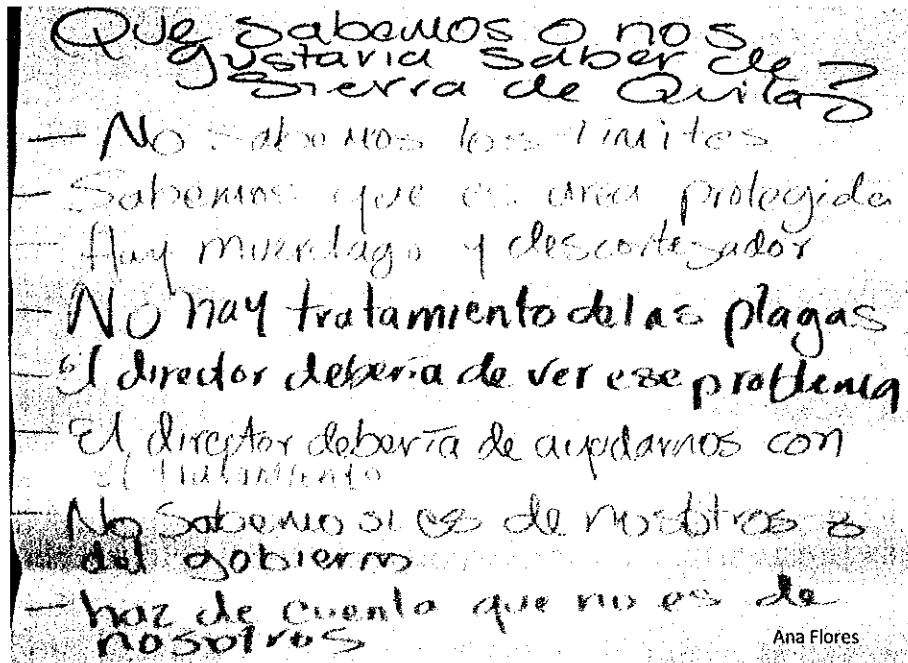 Que sabemos o nos
gustaria saber de
Sierra de Quila?
- No sabemos los limites
- Sabemos que es area protegida
- Hay muerdago y descortezador
- No hay tratamiento de las plagas
- El director deberia de ver ese problema
- El director debería de ayudarnos con
el tratamiento
- No sabemos si es de nosotros o
del gobierno
- haz de cuenta que no es de
nosotros
Ana Flores